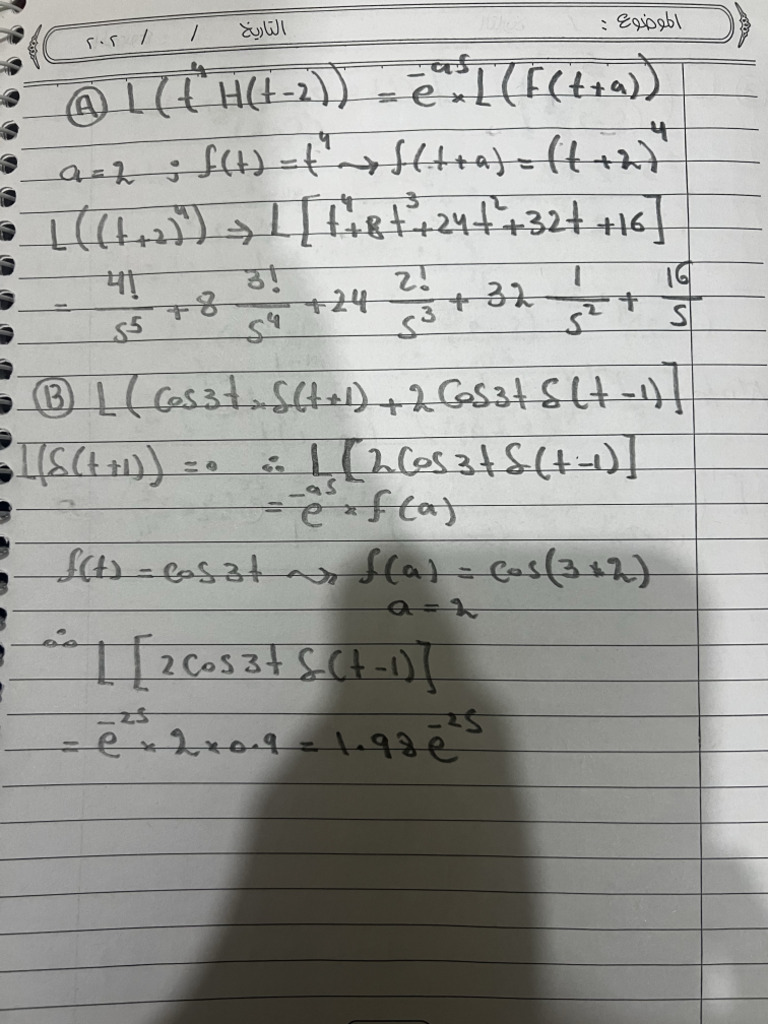 الموضوع :
التاريخ / / ٢٠٢
Ⓐ L(t⁴ H(t-2)) = e^-as * L(F(t+a))
a=2 ; f(t) = t⁴ ⇝ f(t+a) = (t+2)⁴
L((t+2)⁴) ⇒ L[t⁴+8t³+24t²+32t+16]
= 4!/s⁵ + 8 3!/s⁴ + 24 2!/s³ + 32 1/s² + 16/s
Ⓑ L(Cos3t * δ(t+1) + 2 Cos3t δ(t-1)]
L(δ(t+1)) = 0 ∴ L[2Cos3t δ(t-1)]
= e^-as * f(a)
f(t) = cos3t ⇝ f(a) = cos(3*2)
a = 2
∴ L[2Cos3t δ(t-1)]
= e^-2s * 2 * 0.9 = 1.98 e^-2s